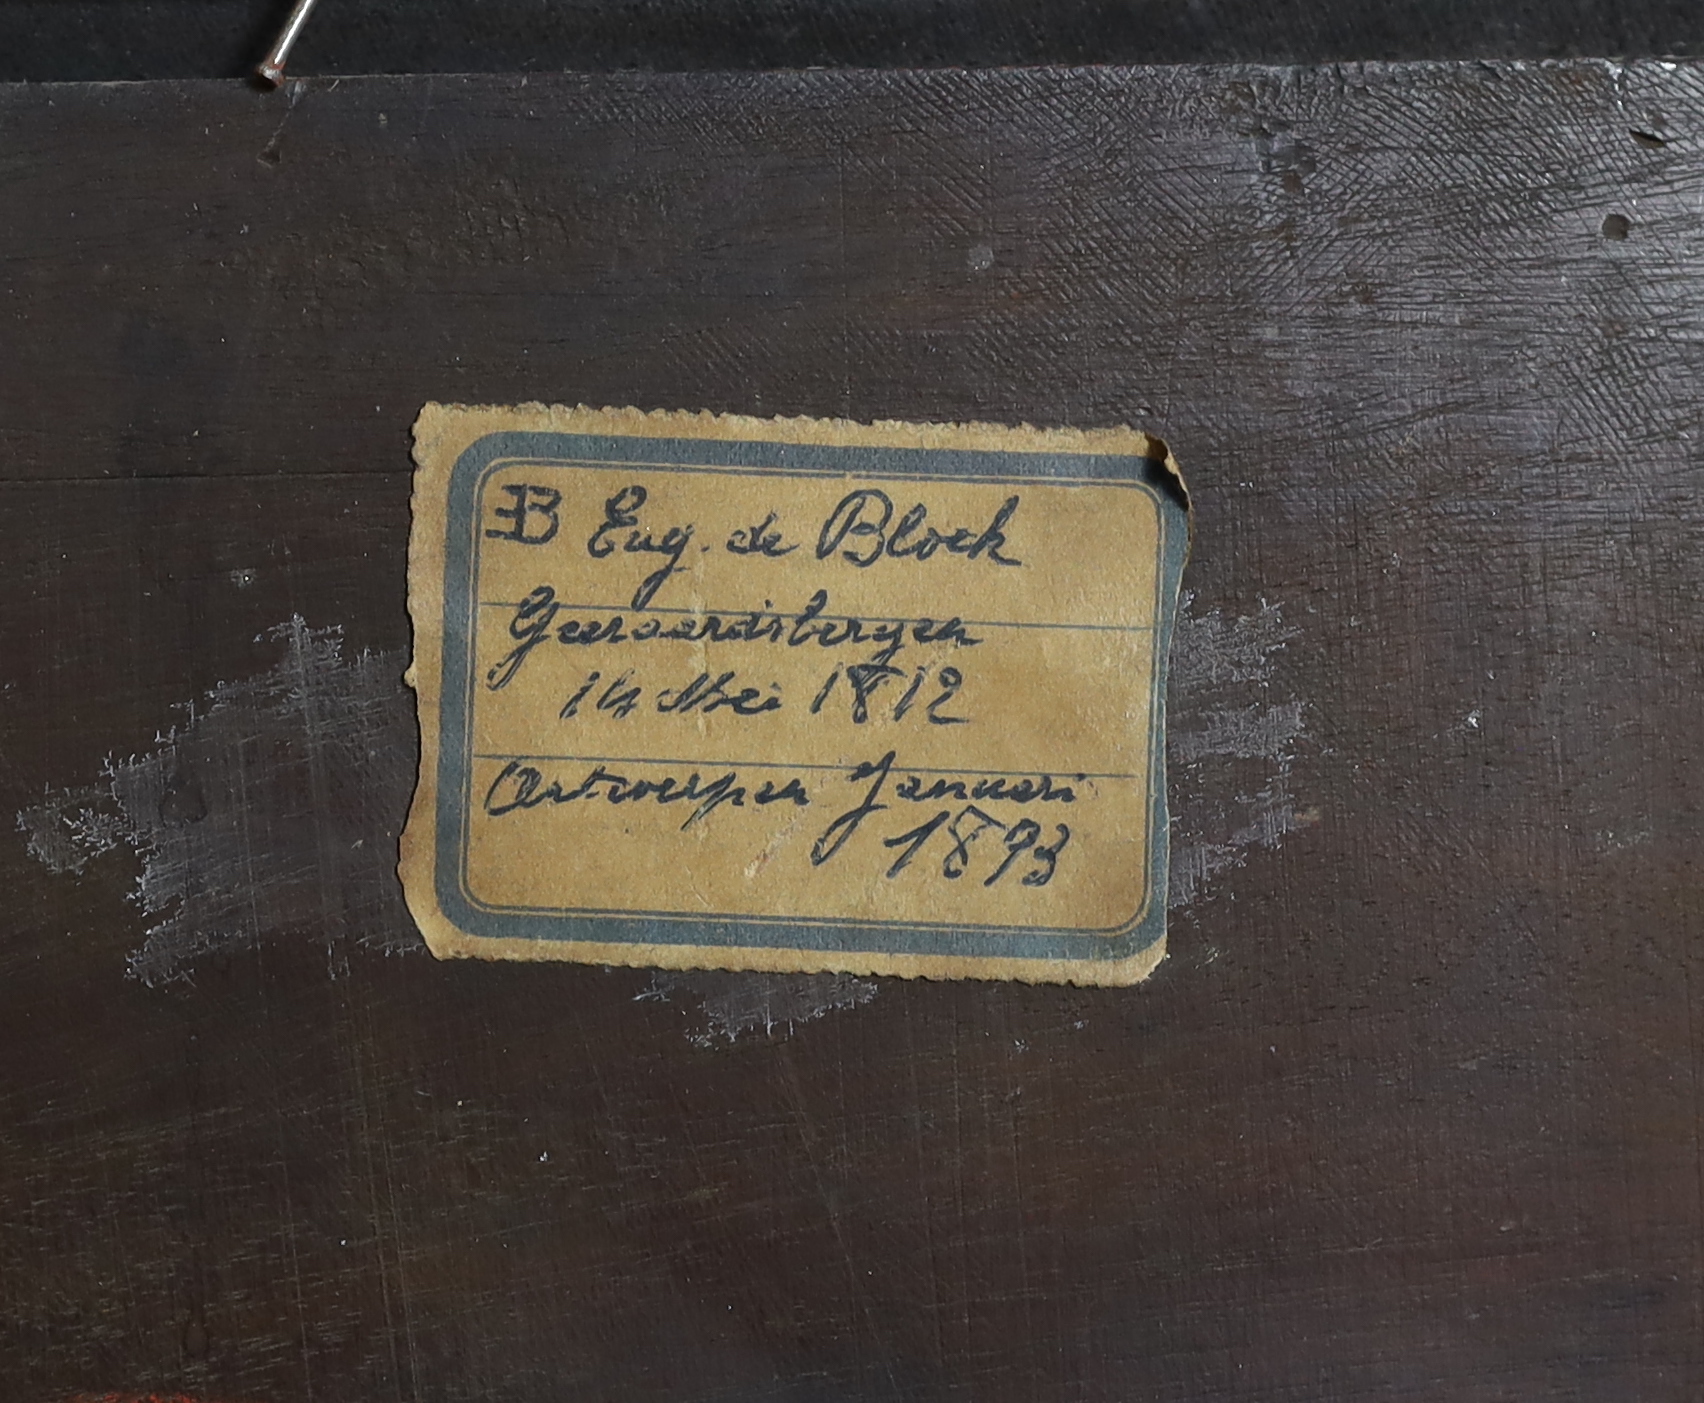 EB Eug. de Block
Geeraardsbergen
14 Mei 1812
Antwerpen Januari
1893